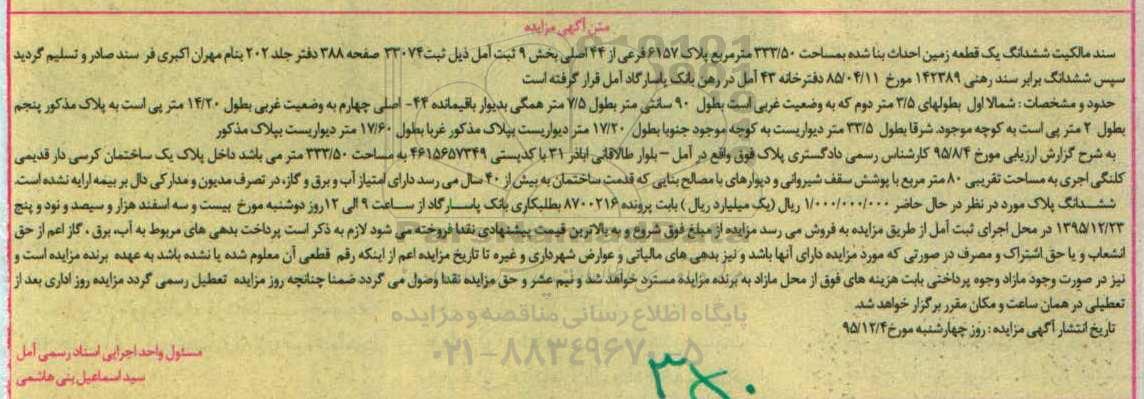 متن آگهی مزایده
سند مالکیت ششدانگ یک قطعه زمین احداث بنا شده بمساحت ۳۳۳/۵۰ مترمربع پلاک ۶۱۵۷ فرعی از ۴۴ اصلی بخش ۹ ثبت آمل ذیل ثبت ۳۳۰۷۴ صفحه ۳۸۸ دفتر جلد ۲۰۲ بنام مهران اکبری فر سند صادر و تسلیم گردید
سپس ششدانگ برابر سند رهنی ۱۴۲۳۸۹ مورخ ۸۵/۰۴/۱۱ دفترخانه ۴۳ آمل در رهن بانک پاسارگاد آمل قرار گرفته است
حدود و مشخصات : شمالا اول بطولهای ۳/۵ متر دوم که به وضعیت غربی است بطول ۹۰ سانتی متر بطول ۷/۵ متر همگی بدیوار باقیمانده ۴۴- اصلی چهارم به وضعیت غربی بطول ۱۴/۲۰ متر پی است به پلاک مذکور پنجم
بطول ۲ متر پی است به کوچه موجود. شرقا بطول ۳۳/۵ متر دیواریست به کوچه موجود جنوبا بطول ۱۷/۲۰ متر دیواریست بپلاک مذکور غربا بطول ۱۷/۶۰ متر دیواریست بپلاک مذکور
به شرح گزارش ارزیابی مورخ ۹۵/۸/۴ کارشناس رسمی دادگستری پلاک فوق واقع در آمل – بلوار طالاقانی اباذر ۳۱ با کدپستی ۴۶۱۵۶۵۷۳۴۹ به مساحت ۳۳۳/۵۰ متر می باشد داخل پلاک یک ساختمان کرسی دار قدیمی
کلنگی اجری به مساحت تقریبی ۸۰ متر مربع با پوشش سقف شیروانی و دیوارهای با مصالح بنایی که قدمت ساختمان به بیش از ۴۰ سال می رسد دارای امتیاز آب و برق و گاز، در تصرف مدیون و مدارکی دال بر بیمه ارایه نشده است.
ششدانگ پلاک مورد در نظر در حال حاضر ۱/۰۰۰/۰۰۰/۰۰۰ ریال (یک میلیارد ریال ) بابت پرونده ۸۷۰۰۲۱۶ بطلبکاری بانک پاسارگاد از ساعت ۹ الی ۱۲روز دوشنبه مورخ بیست و سه اسفند هزار و سیصد و نود و پنج
۱۳۹۵/۱۲/۲۳ در محل اجرای ثبت آمل از طریق مزایده به فروش می رسد مزایده از مبلغ فوق شروع و به بالاترین قیمت پیشنهادی نقدا فروخته می شود لازم به ذکر است پرداخت بدهی های مربوط به آب، برق ، گاز اعم از حق
انشعاب و یا حق اشتراک و مصرف در صورتی که مورد مزایده دارای آنها باشد و نیز بدهی های مالیاتی و عوارض شهرداری و غیره تا تاریخ مزایده اعم از اینکه رقم قطعی آن معلوم شده یا نشده باشد به عهده برنده مزایده است و
نیز در صورت وجود مازاد وجوه پرداختی بابت هزینه های فوق از محل مازاد به برنده مزایده مسترد خواهد شد و نیم عشر و حق مزایده نقدا وصول می گردد ضمنا چنانچه روز مزایده تعطیل رسمی گردد مزایده روز اداری بعد از
تعطیلی در همان ساعت و مکان مقرر برگزار خواهد شد.
پایگاه اطلاع رسانی مناقصه و مزایده
تاریخ انتشار آگهی مزایده : روز چهارشنبه مورخ ۹۵/۱۲/۴
۰۲۱-۸۸۳۴۹۶۷۰-۵
مسئول واحد اجرایی اسناد رسمی آمل
سید اسماعیل بنی هاشمی